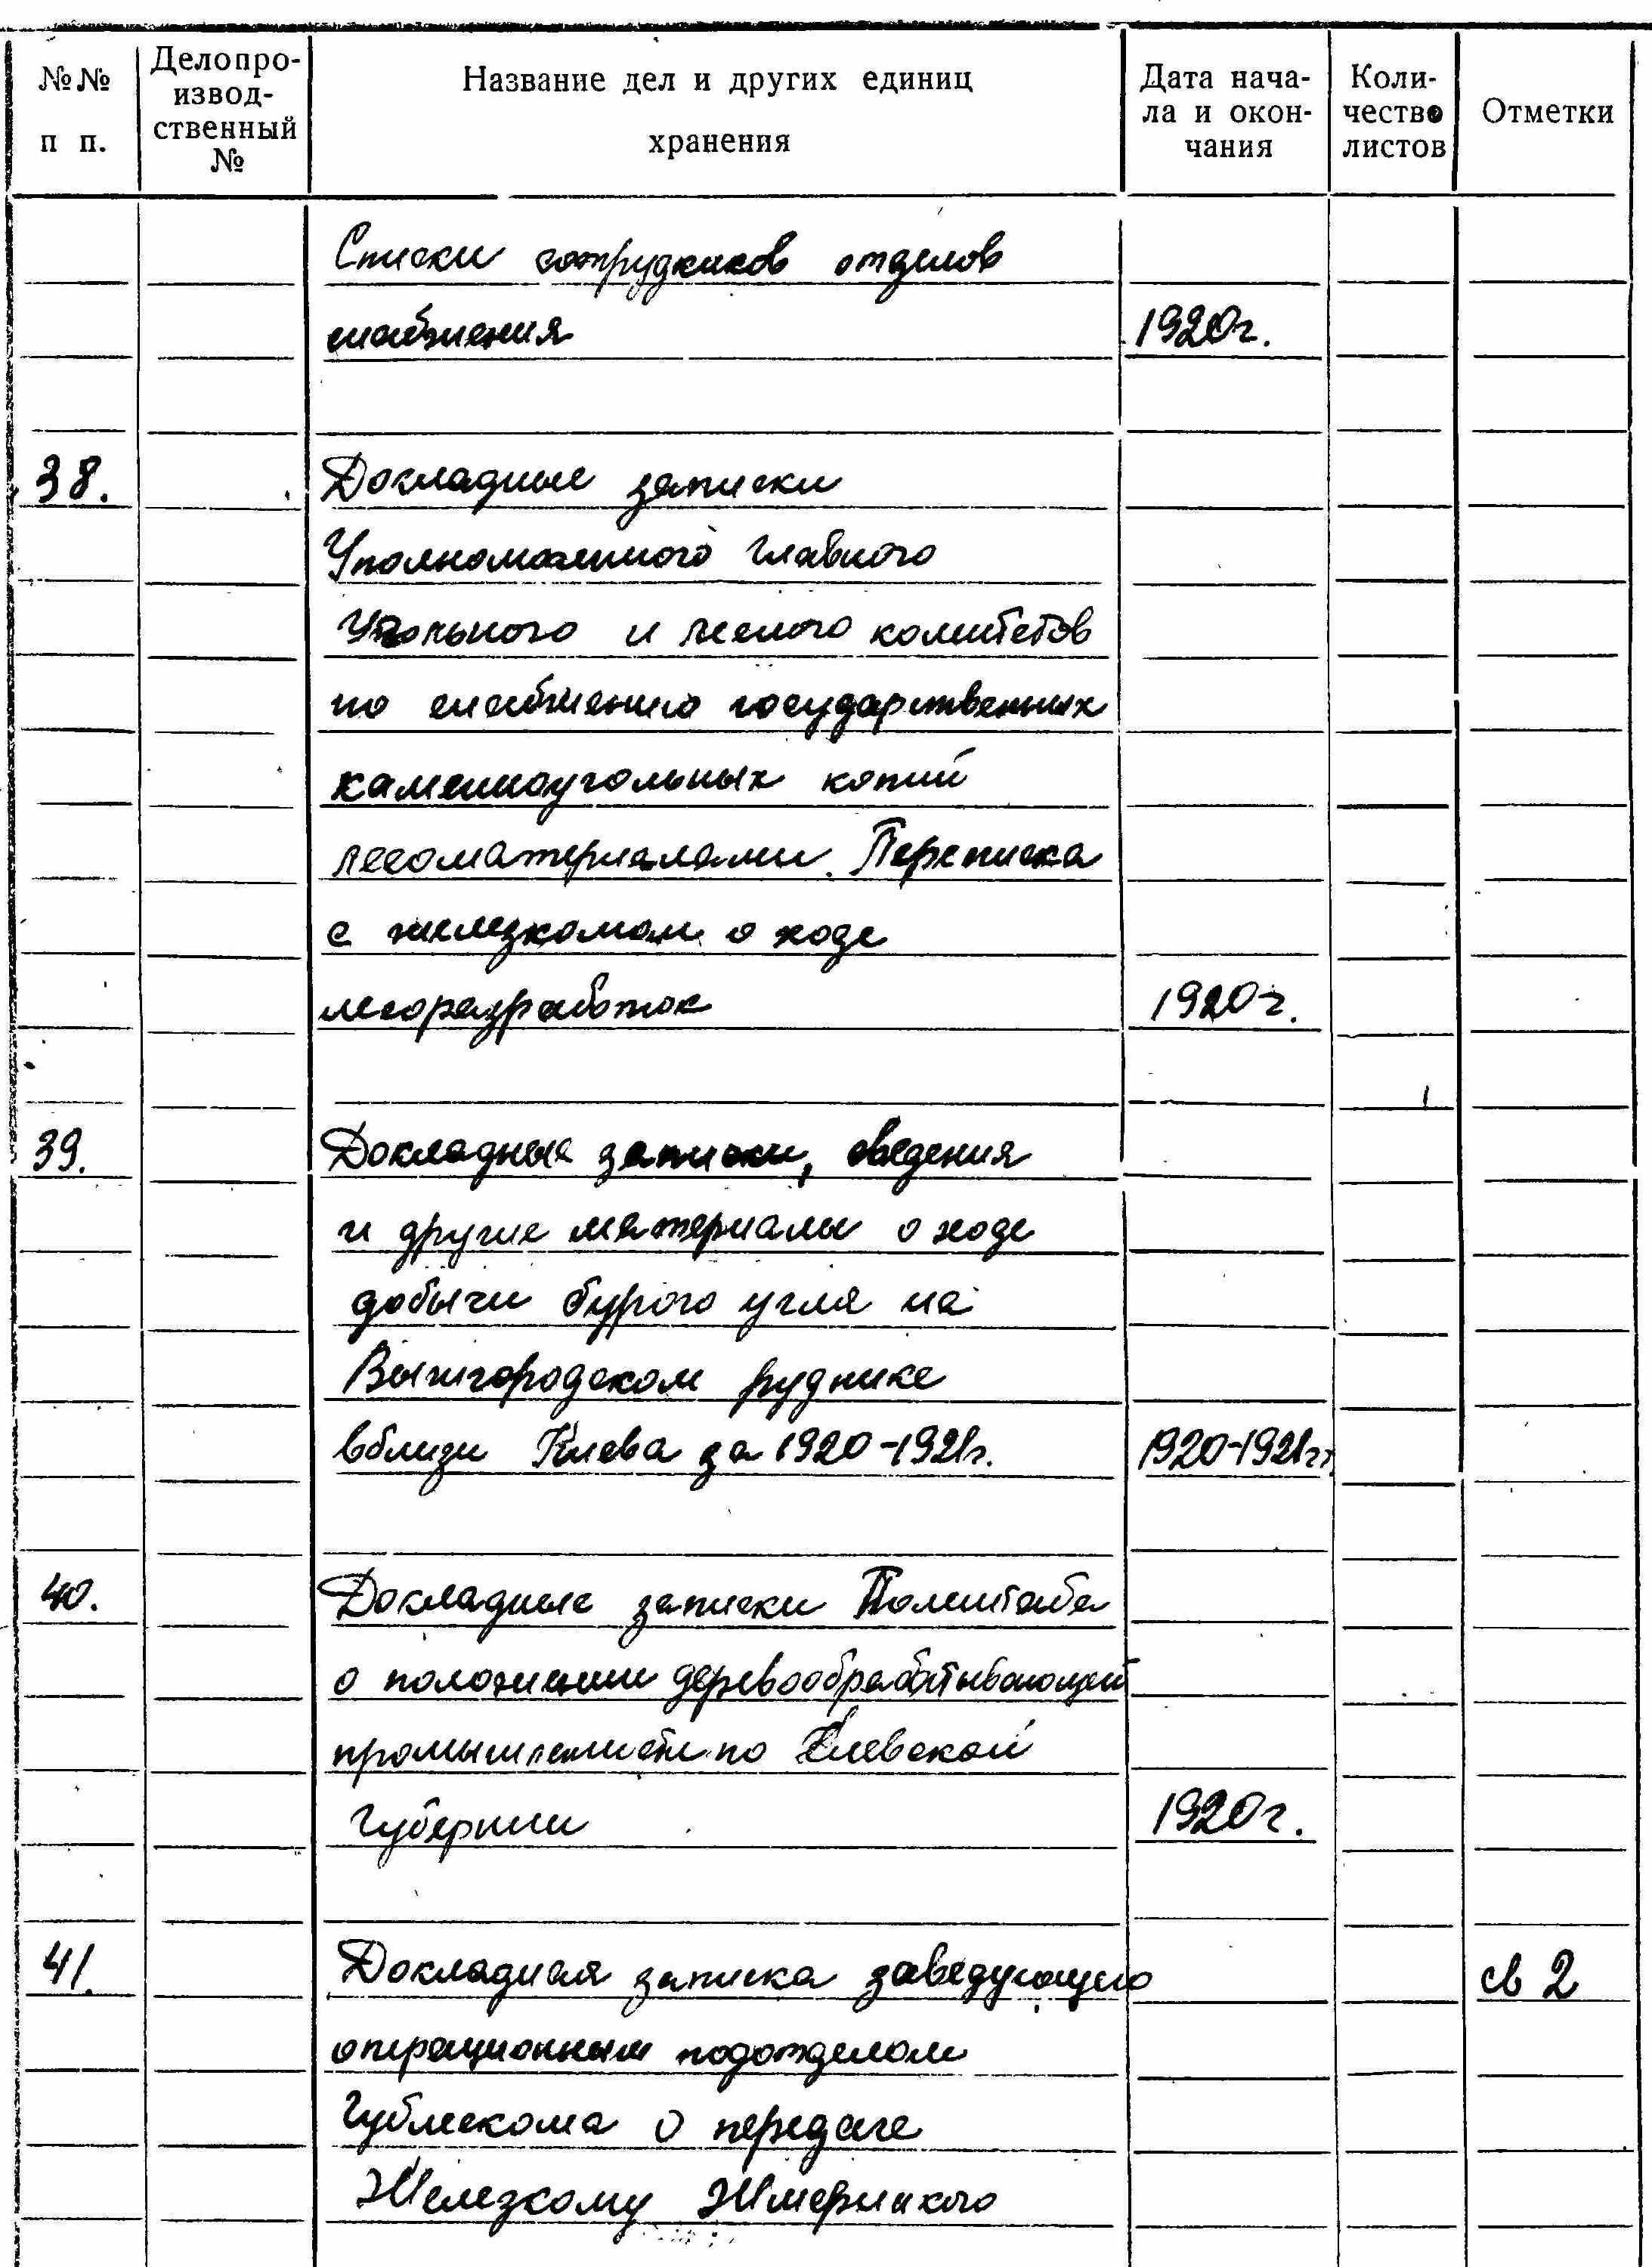 №№ п п.
Делопро-
извод-
ственный
№
Название дел и других единиц
хранения
Дата нача-
ла и окон-
чания
Коли-
чество
листов
Отметки
Списки сотрудников отделов
снабжения 1920г.
38. Докладные записки
Уполномоченного Главного
Угольного и лесного комитетов
по снабжению государственных
каменноугольных копий
лесоматериалами. Переписка
с железкомом о ходе
лесоразработок 1920г.
39. Докладные записки, сведения
и другие материалы о ходе
добычи бурого угля на
Вышгородском руднике
вблизи Киева за 1920-1921г. 1920-1921гг.
40. Докладные записки
о положении деревообрабатывающей
промышленности по Киевской
Губернии 1920г.
41. Докладная записка заведующего св 2
операционным подотделом
Гублескома о передаче
Железкому Жмеринского